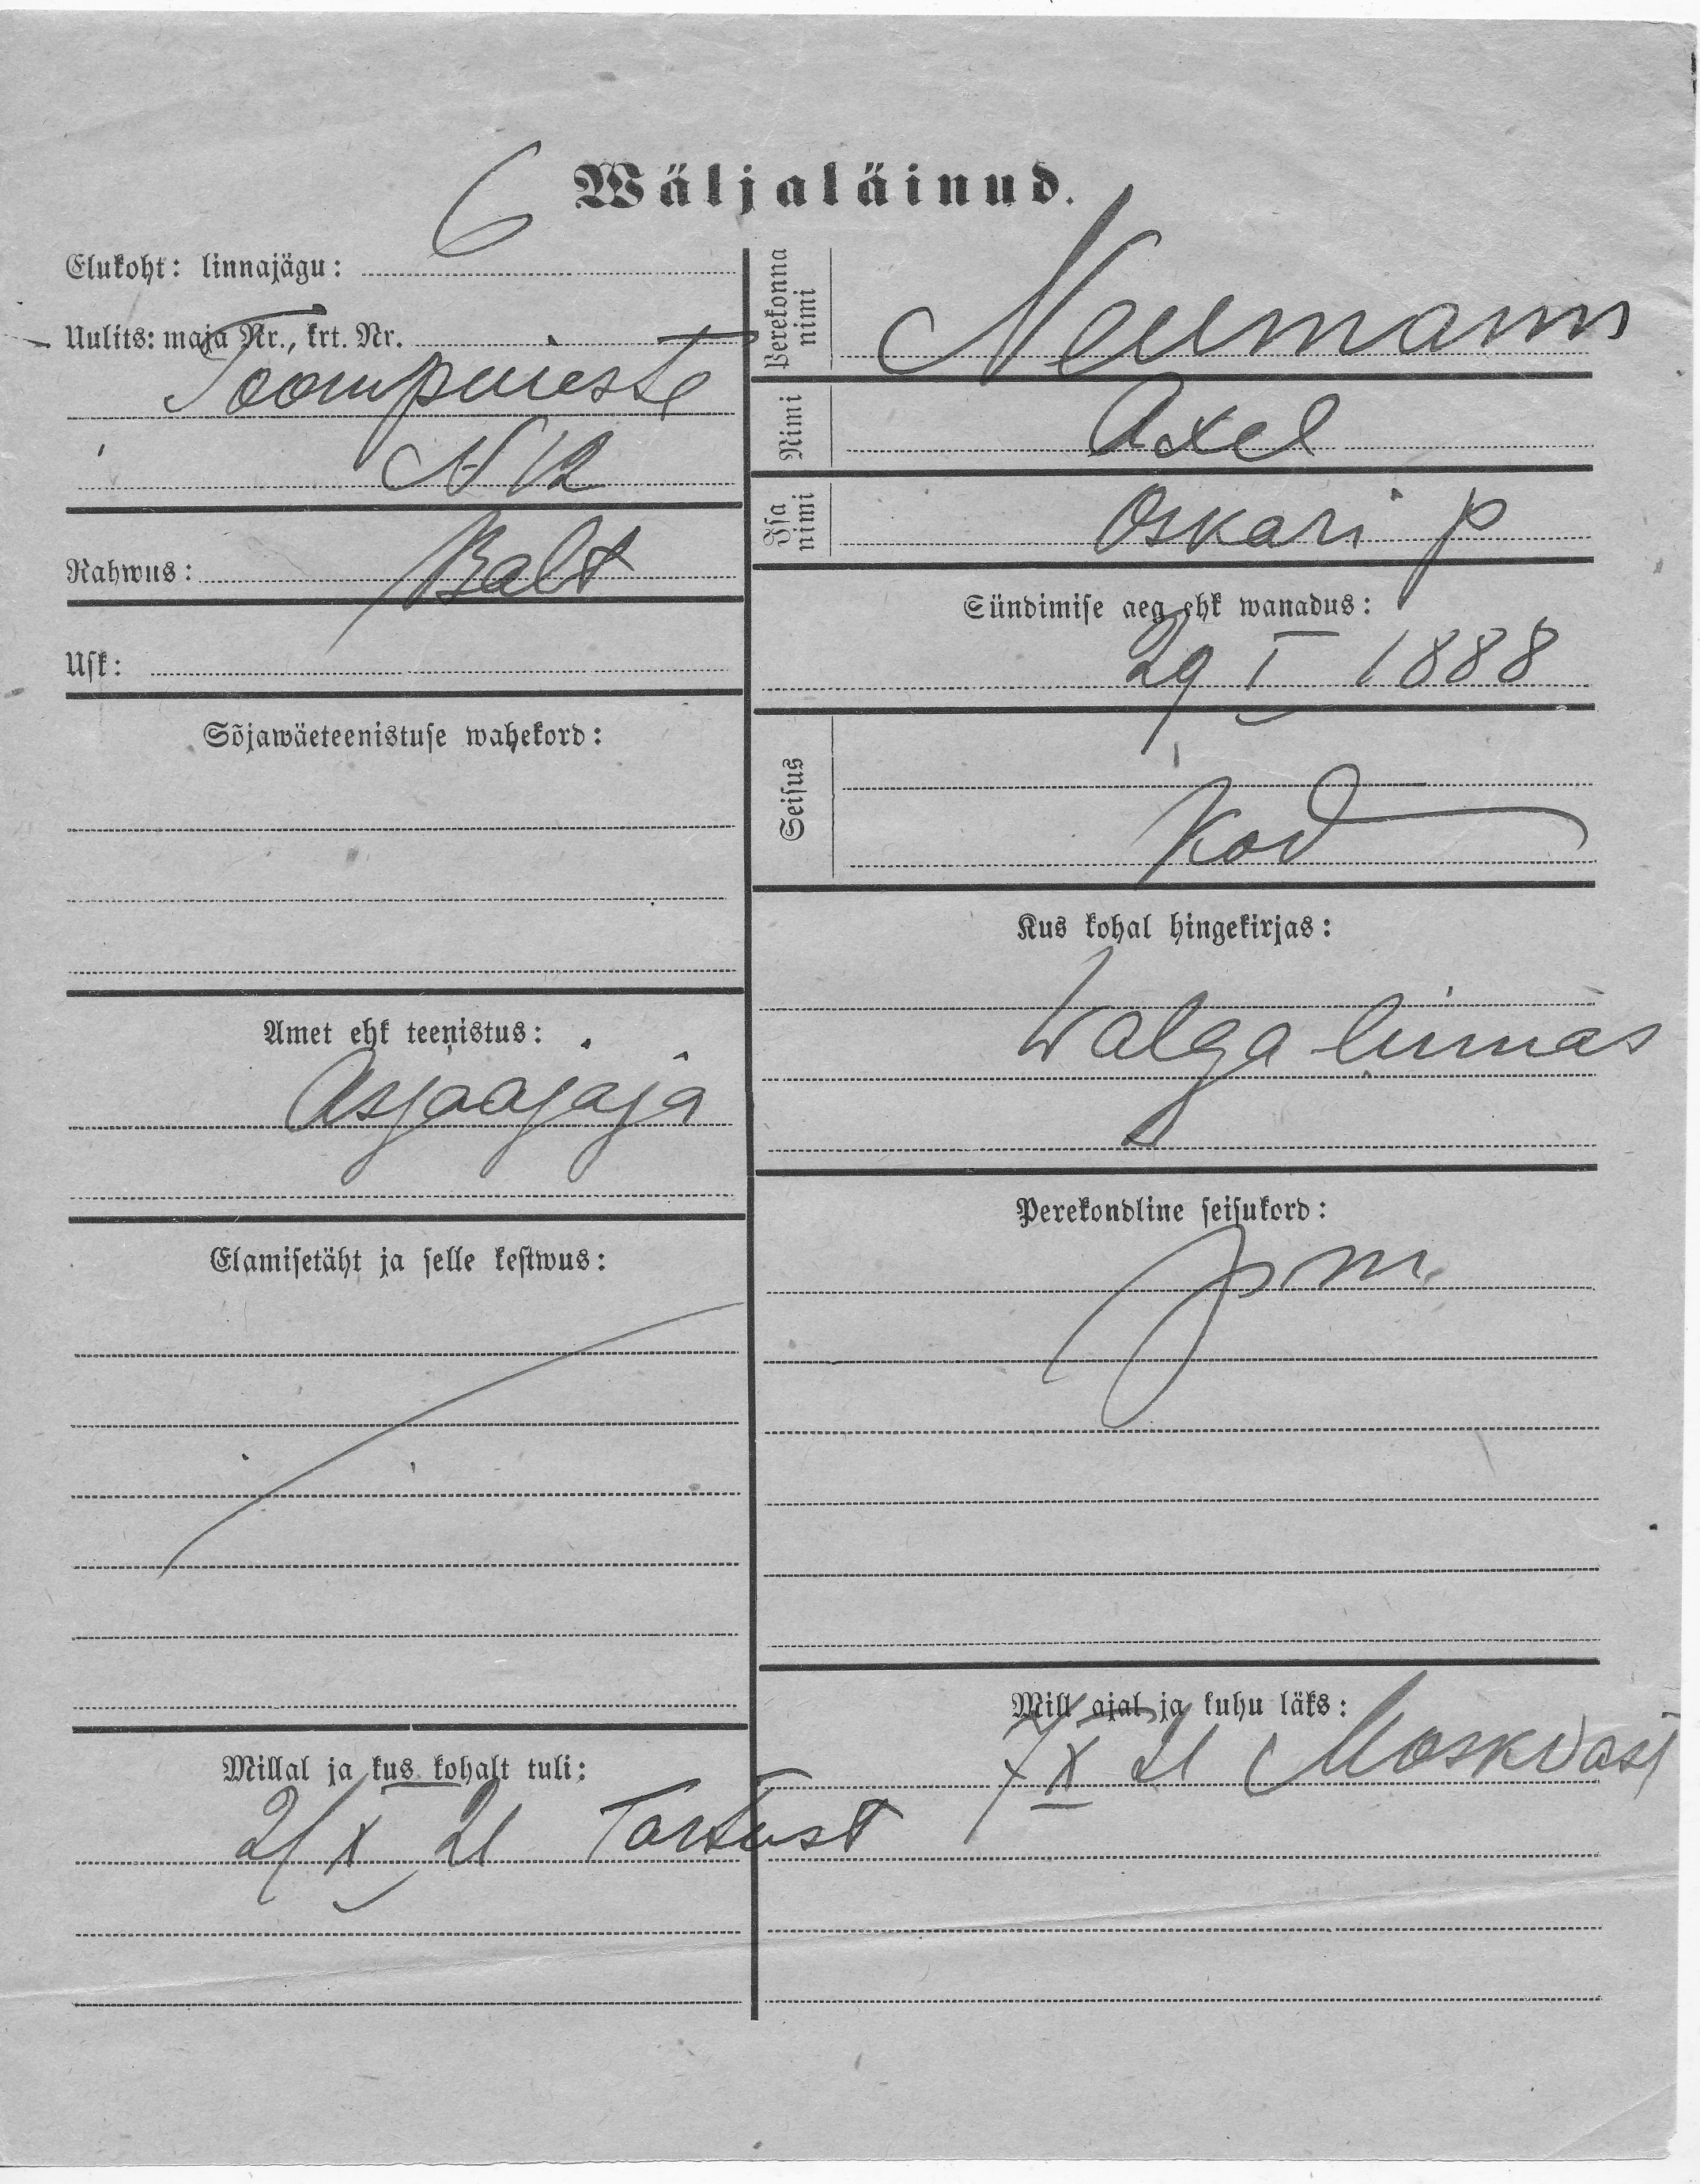 Wäljaläinud.
Elukoht: linnajägu: 6
Uulits: maja Nr., krt. Nr.
Toompuieste
N 12
Rahwus: Balt
Usk:
Sõjawäeteenistuse wahekord:
Amet ehk teenistus:
Asjaajaja
Elamisetäht ja selle kestwus:
Millal ja kus kohalt tuli:
2/X 21 Tartust
Perekonna nimi
Neumann
Nimi
Axel
Isa nimi
Oskari p
Sündimise aeg ehk wanadus:
29 I 1888
Seisus
Kod
Kus kohal hingekirjas:
Walga linnas
Perekondline seisukord:
Mill ajal ja kuhu läks:
7 X 21